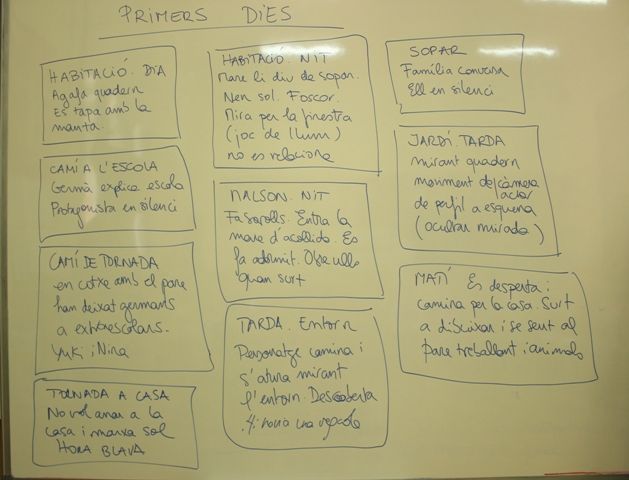 PRIMERS DIES
HABITACIÓ. DIA
Agafa quadern
Es tapa amb la
manta.
CAMÍ A L'ESCOLA
Germà explica escola
Protagonista en silenci
CAMÍ DE TORNADA
en cotxe amb el pare
han deixat germans
a extraescolars.
Yuki i Nina
TORNADA A CASA
No vol anar a la
casa i marxa sol
HORA BLAVA
HABITACIÓ. NIT
Mare li diu de sopar.
Nen sol. Foscor.
Mira per la finestra
(joc de llum)
no es relaciona
MALSON. NIT
Fa sorolls. Entra la
mare d'acollida. Es
fa adormit. Obre ulls
quan surt
TARDA. Entorn
Personatge camina i
s'atura mirant
l'entorn. Descoberta
SOPAR
Família conversa
Ell en silenci
JARDÍ. TARDA
mirant quadern
moviment de càmera
actor
de perfil a esquena
(ocultar mirada)
MATÍ Es desperta i
camina per la casa. Surt
a dibuixar i se sent al
pare treballant i animals